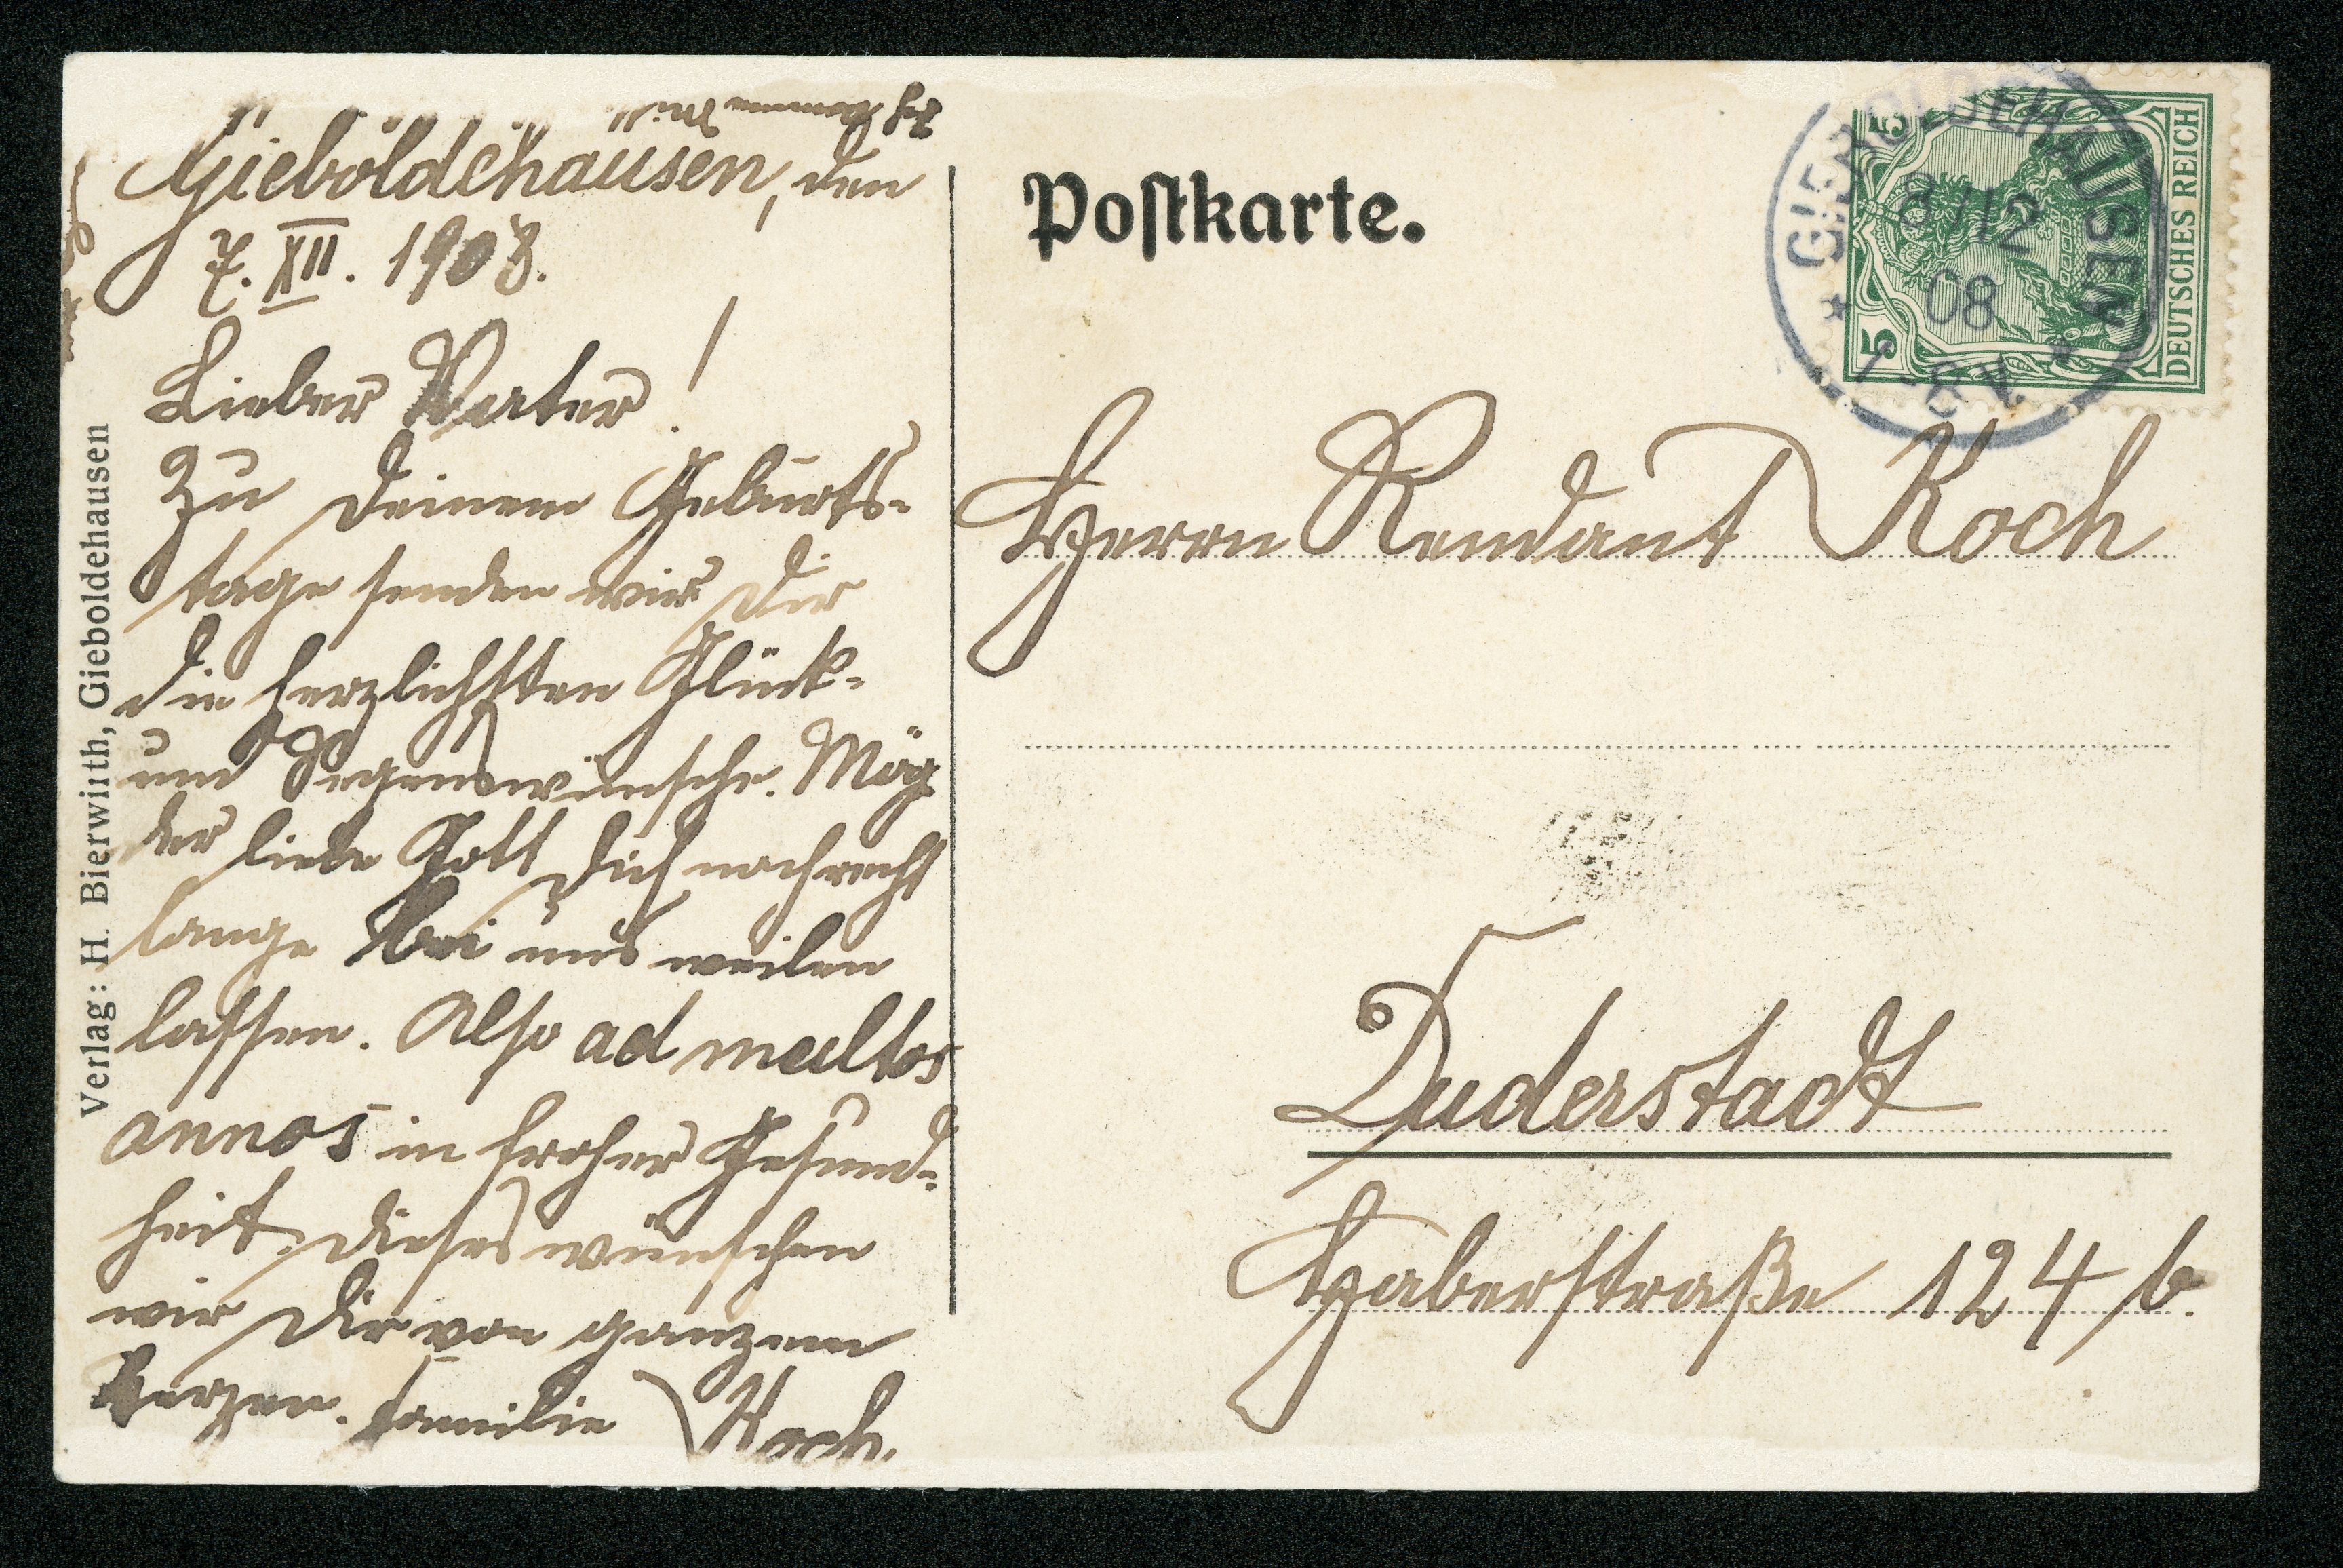 Gieboldehausen, den
7. XII. 1908.
Lieber Vater!
Zu Deinem Geburts-
tage senden wir Dir
die herzlichsten Glück-
und Segenswünsche. Mög
der liebe Gott Dich noch recht
lange bei uns weilen
lassen. Also ad multos
annos in froher Gesund-
heit, dieses wünschen
wir Dir von ganzem
Herzen. Familie Koch.
Ich komme
Verlag: H. Bierwirth, Gieboldehausen
Postkarte.
GIEBOLDEHAUSEN
8/12
08
7-8V.
5
5
DEUTSCHES REICH
Herrn Rendant Koch
Duderstadt
Haberstraße 124 b.